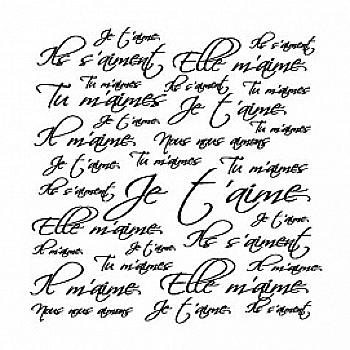 Je t'aime
Ils s'aiment
Ils s'aiment Elle m'aime
Tu m'aimes Ils s'aiment Tu m'aimes
Tu m'aimes Je t'aime
Je t'aime Tu m'aimes
Il m'aime Nous nous aimons
Je t'aime Tu m'aimes Tu m'aimes
Ils s'aiment Je t'aime
Elle m'aime Je t'aime
Il m'aime Je t'aime Ils s'aiment
Tu m'aimes Il m'aime
Il m'aime Elle m'aime
Nous nous aimons Je t'aime Ils s'aiment